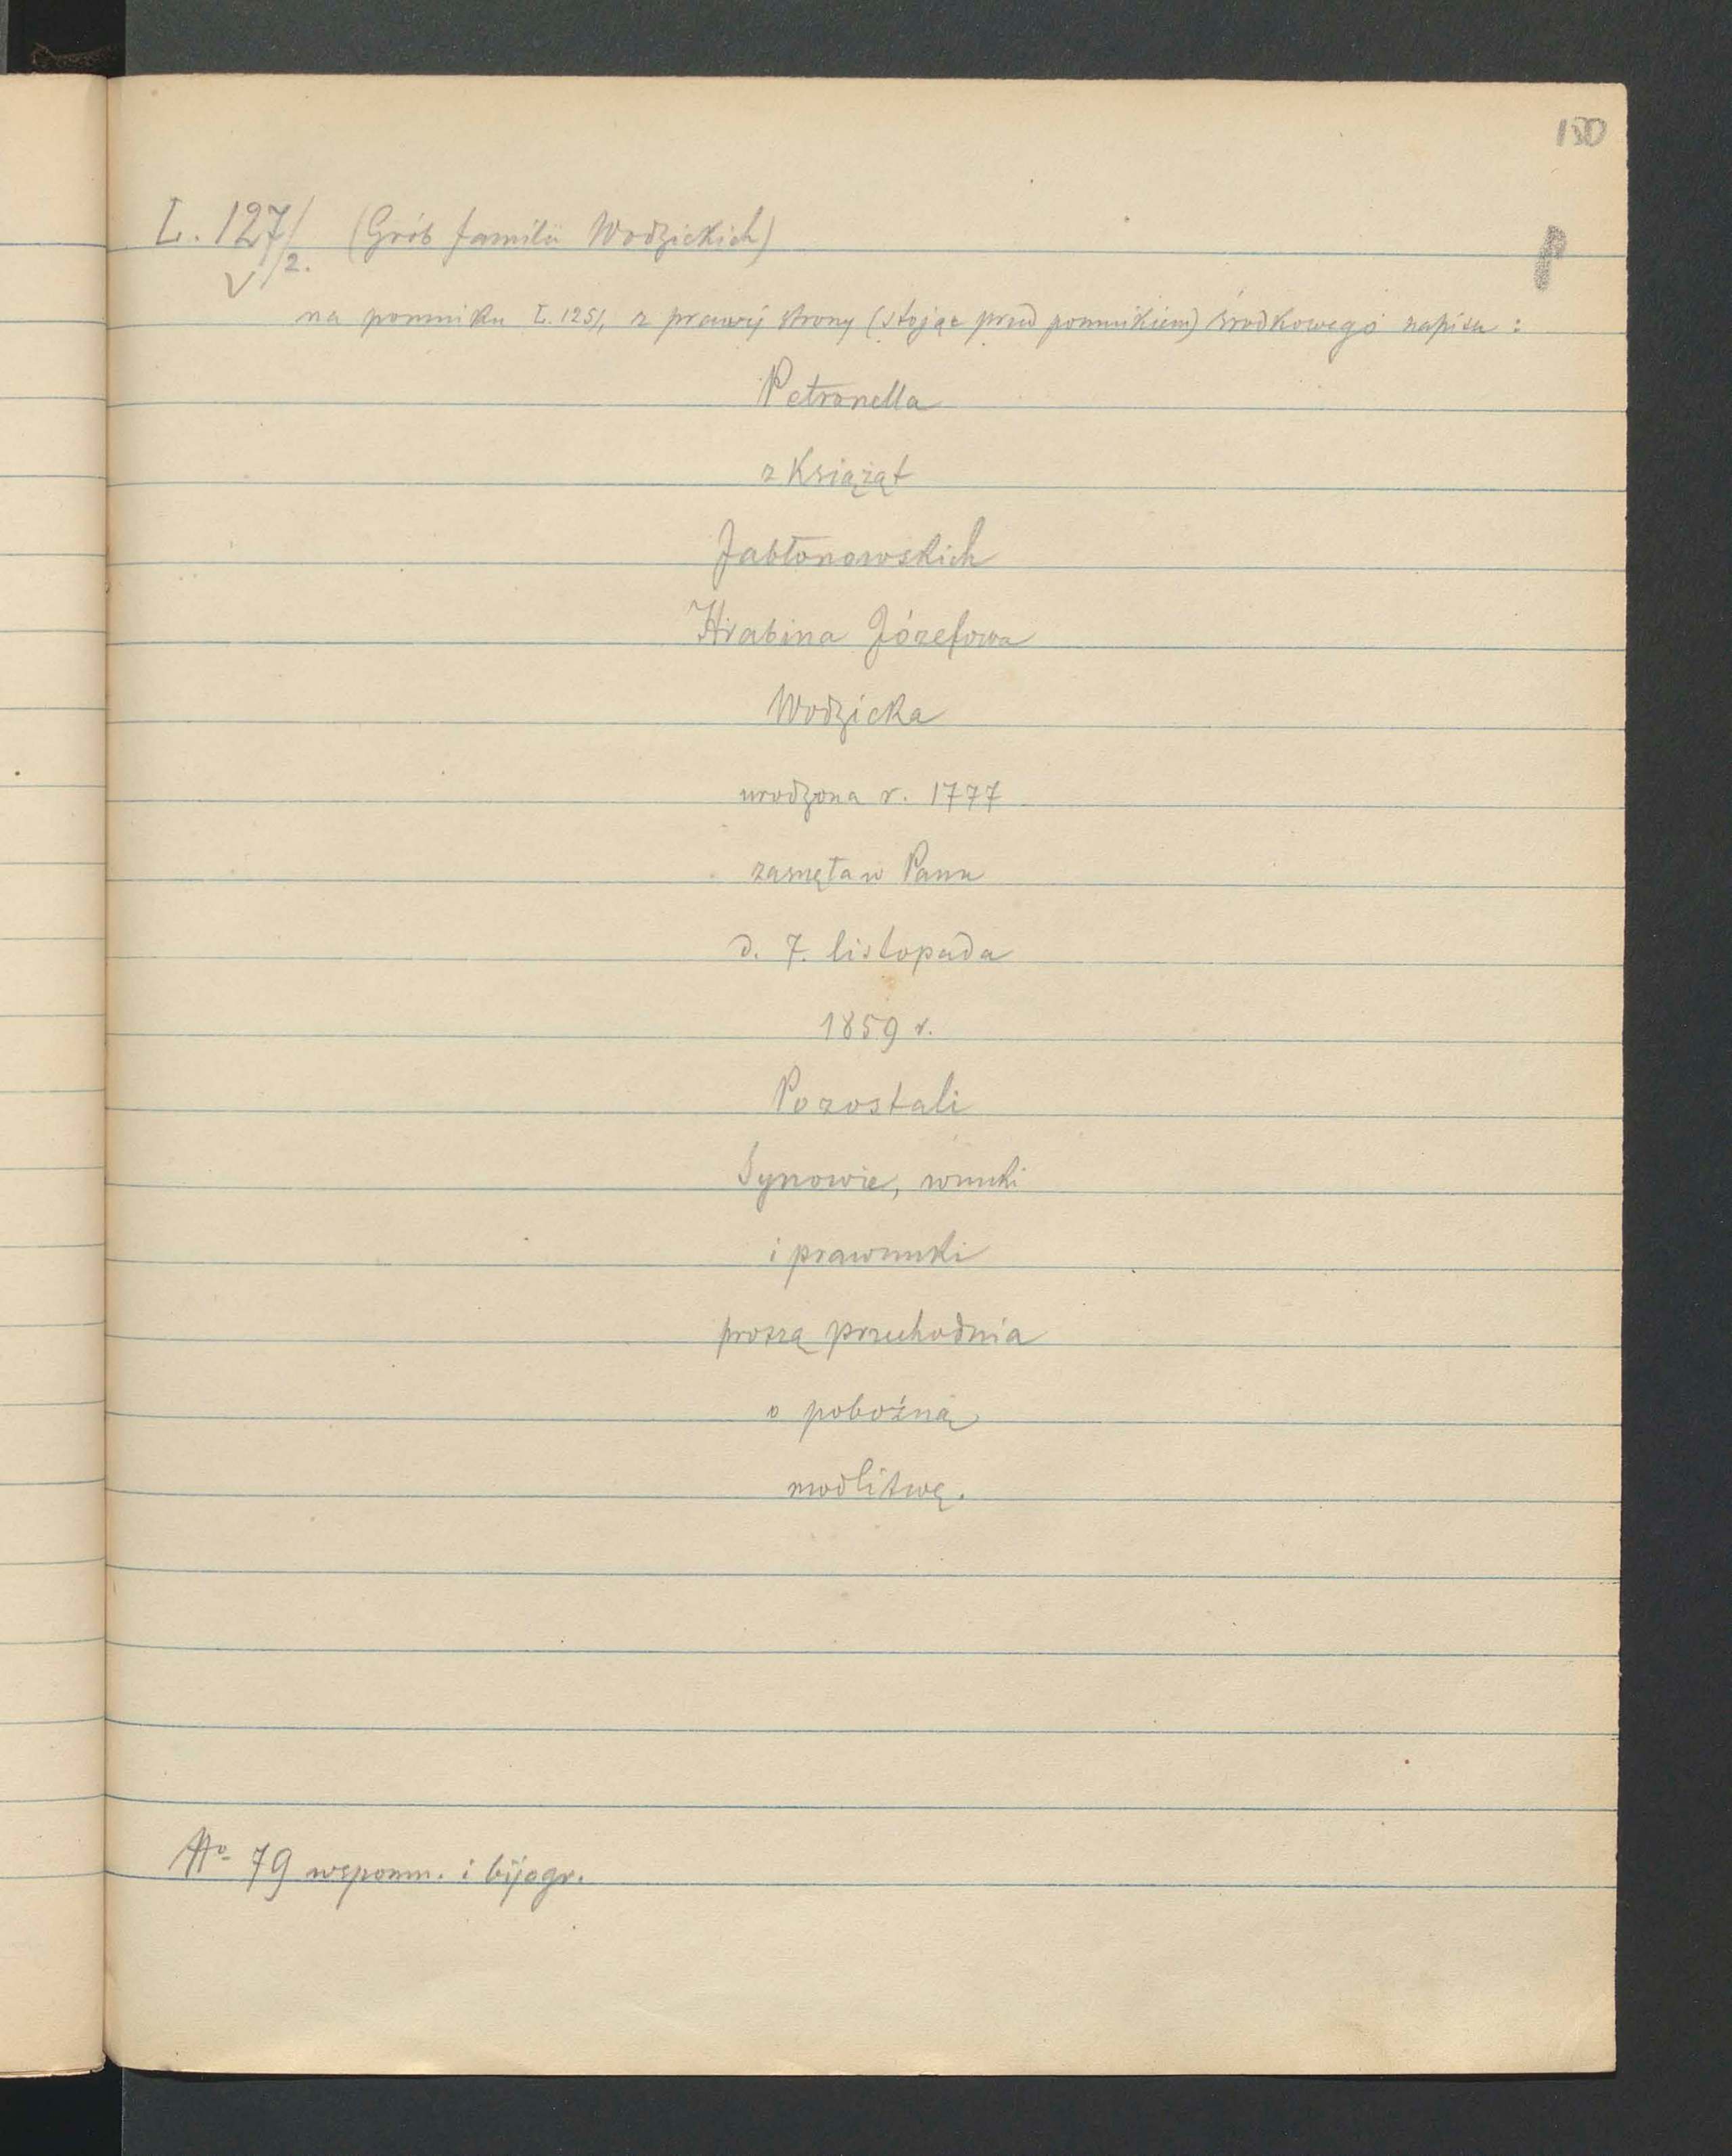 150
L. 127/ (Grób familii Wodzickich)
√/2.
P
na pomniku L. 125/, z prawéj strony (stojąc przed pomnikiem) środkowego napisu:
Petronella
z Książąt
Jabłonowskich
Hrabina Józefowa
Wodzicka
urodzona r. 1777
zasnęła w Panu
d. 7. listopada
1859 r.
Pozostali
Synowie, wnuki
i prawnuki
proszą przechodnia
o pobożną
modlitwę.
No 79 wspomn. i bijogr.